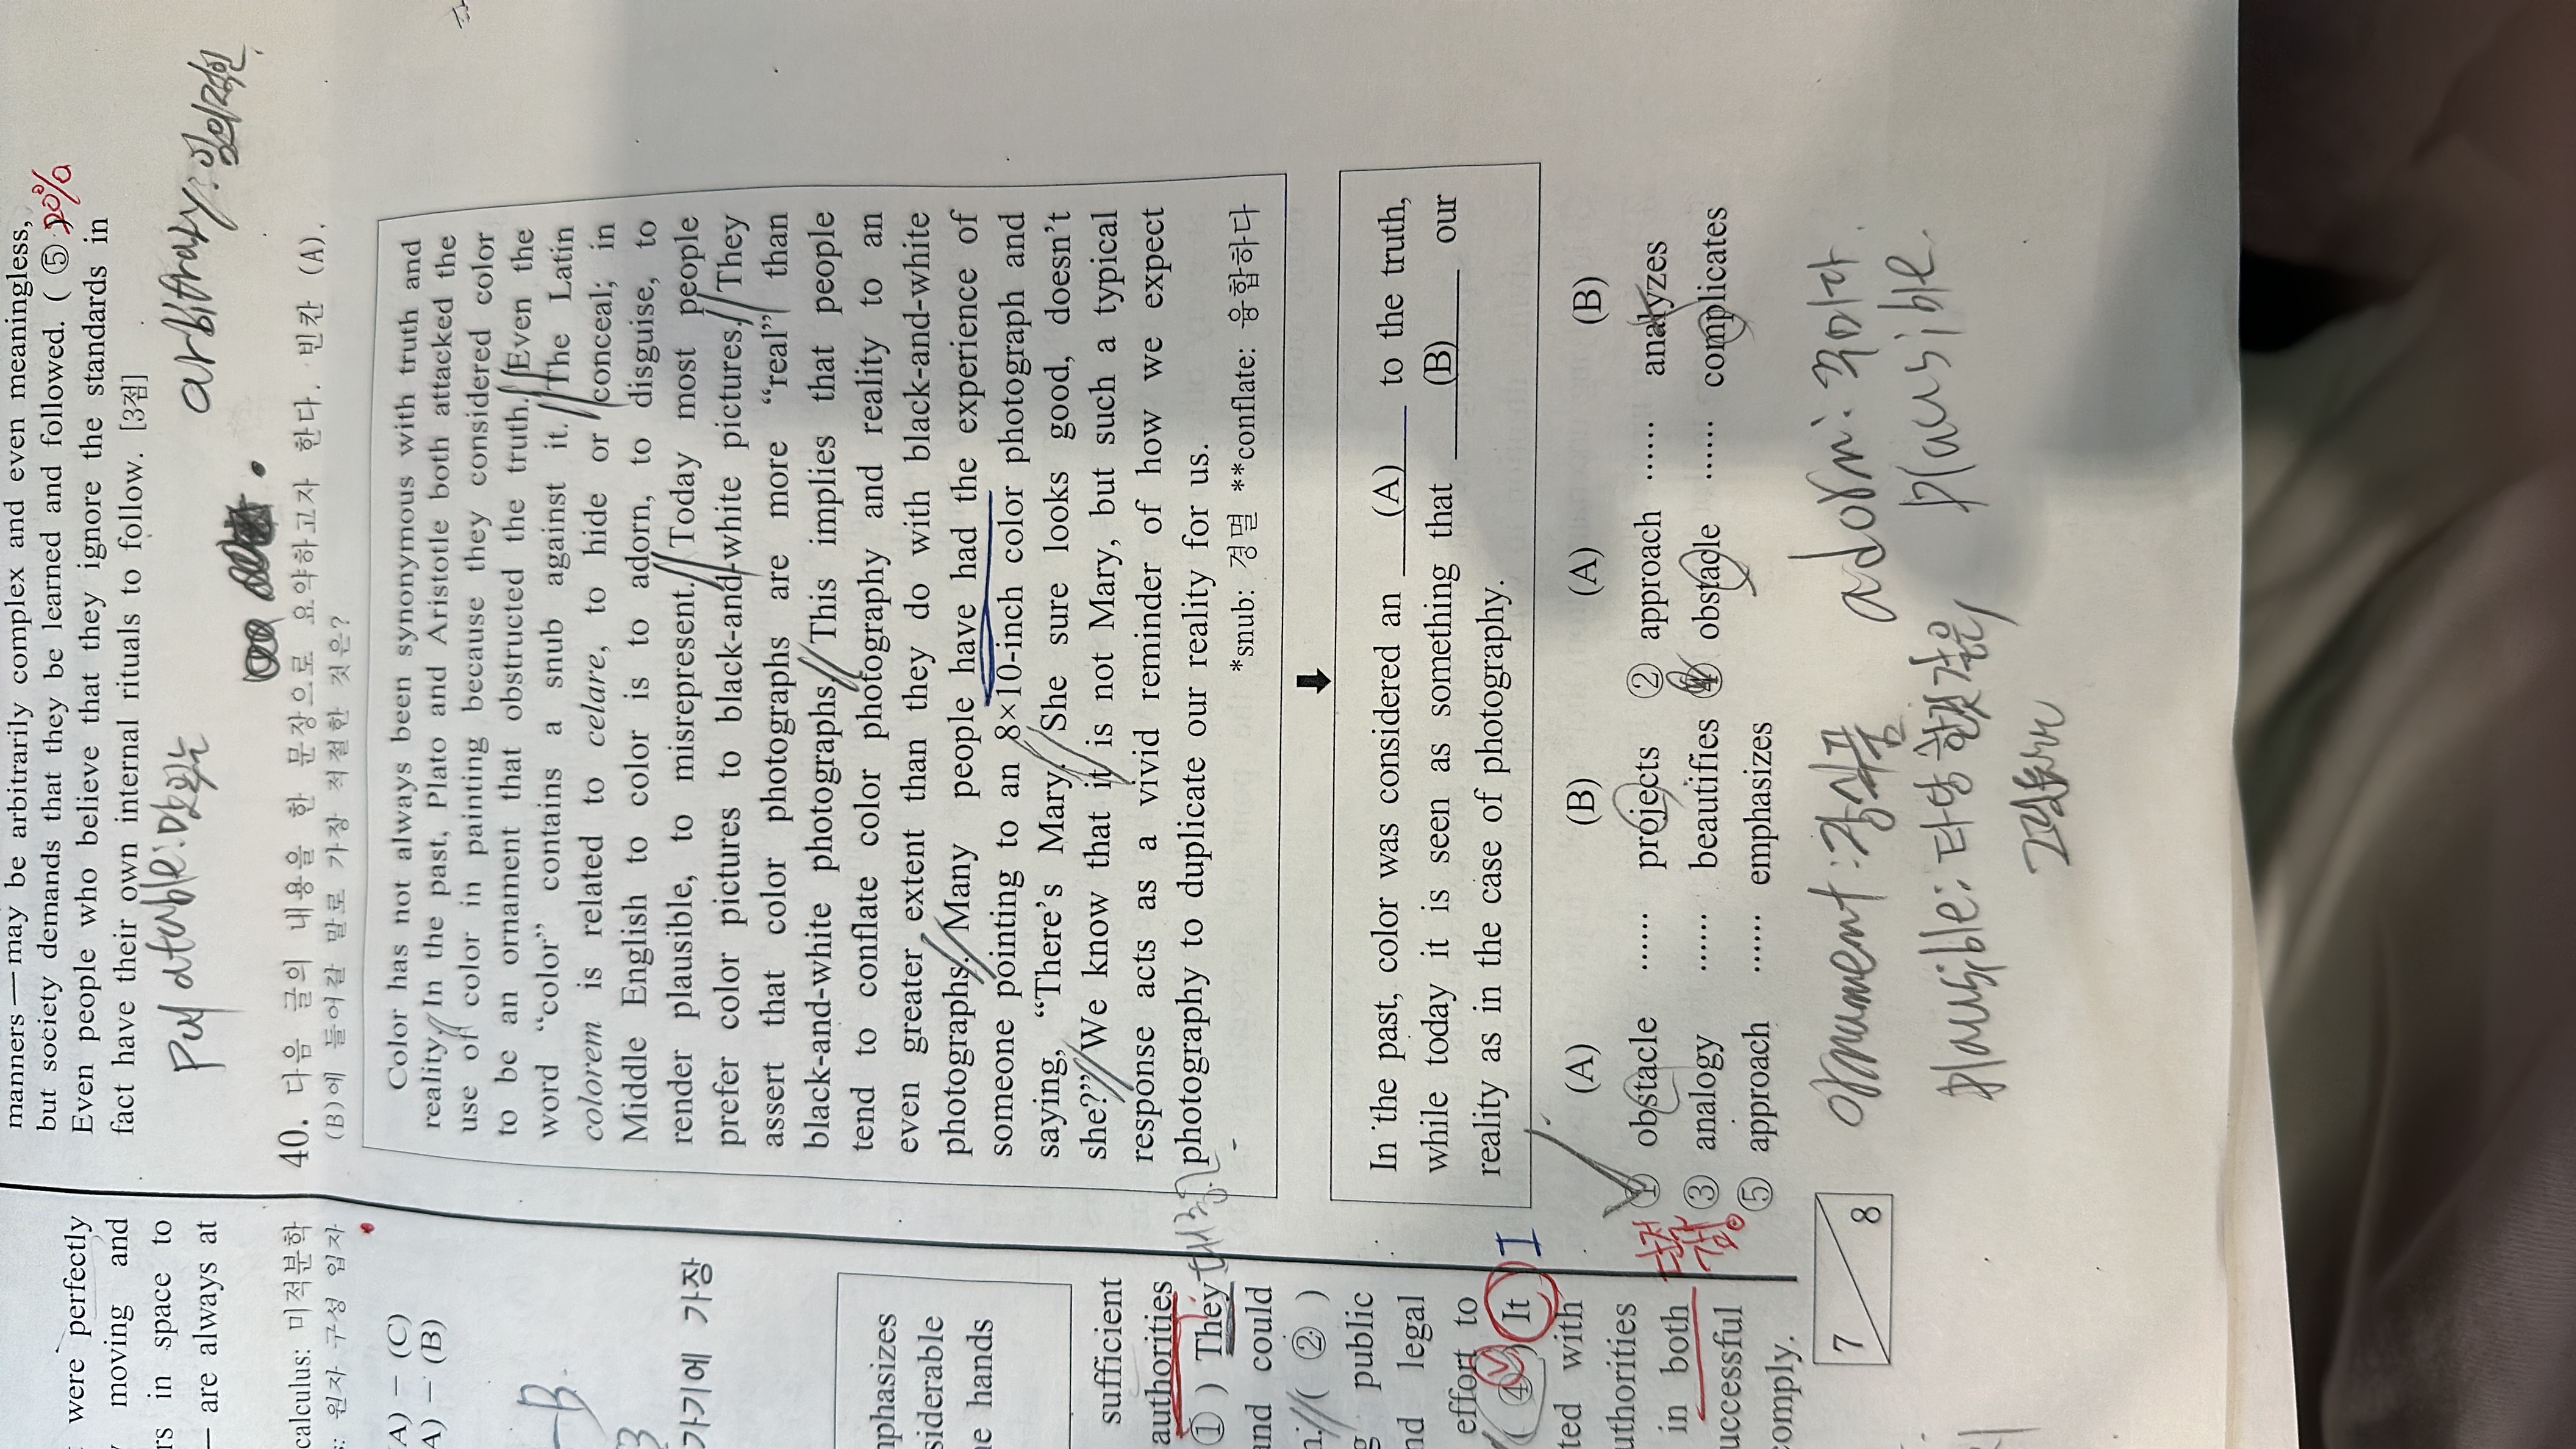 manners — may be arbitrarily complex and even meaningless,
but society demands that they be learned and followed. ( ⑤ ) 20%
Even people who believe that they ignore the standards in
fact have their own internal rituals to follow. [3점]
arbitrary: 임의적인
40. 다음 글의 내용을 한 문장으로 요약하고자 한다. 빈칸 (A),
(B)에 들어갈 말로 가장 적절한 것은?
Color has not always been synonymous with truth and
reality. In the past, Plato and Aristotle both attacked the
use of color in painting because they considered color
to be an ornament that obstructed the truth. Even the
word “color” contains a snub against it. The Latin
colorem is related to celare, to hide or conceal; in
Middle English to color is to adorn, to disguise, to
render plausible, to misrepresent. Today most people
prefer color pictures to black-and-white pictures. They
assert that color photographs are more “real” than
black-and-white photographs. This implies that people
tend to conflate color photography and reality to an
even greater extent than they do with black-and-white
photographs. Many people have had the experience of
someone pointing to an 8×10-inch color photograph and
saying, “There’s Mary. She sure looks good, doesn’t
she?” We know that it is not Mary, but such a typical
response acts as a vivid reminder of how we expect
photography to duplicate our reality for us.
*snub: 경멸 **conflate: 융합하다
In the past, color was considered an (A) to the truth,
while today it is seen as something that (B) our
reality as in the case of photography.
(A) (B) (A) (B)
① obstacle …… projects ② approach …… analyzes
③ analogy …… beautifies ④ obstacle …… complicates
⑤ approach …… emphasizes
ornament: 장식품 adorn: 꾸미다.
plausible: 타당한것같은, plausible.
7 8
were perfectly
moving and
rs in space to
— are always at
calculus: 미적분학
: 원자 구성 입자
(A) − (C)
A) − (B)
가기에 가장
mphasizes
siderable
he hands
sufficient
authorities
① ) They
and could
n. ( ② )
g public
nd legal
effort to
( ④ ) It
ted with
uthorities
in both
uccessful
comply.